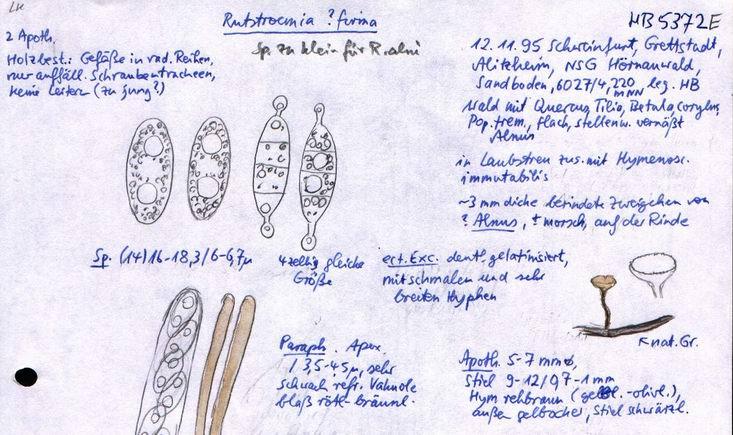 LK
Rutstroemia ? firma
HB 5372E
Sp. zu klein für R. alni
2 Apoth.
Holzbest.: Gefäße in rad. Reihen,
nur auffäll. Schraubentracheen,
keine Leitern (zu jung?)
12.11.95 Schweinfurt, Grettstadt,
Alitzheim, NSG Hörnauwald,
Sandboden, 6027/4, 220 mNN leg. HB
Wald mit Quercus, Tilia, Betula, Corylus,
Pop. trem., flach, stellenw. vernäßt
Alnus
in Laubstreu zus. mit Hymenosc.
immutabilis
~3 mm dicke berindete Zweigchen von
? Alnus, ± morsch, auf der Rinde
Sp. (14) 16-18,3/6-6,7µ
4zellig gleiche
Größe
ect. Exc. deutl. gelatinisiert,
mit schmalen und sehr
breiten Hyphen
nat. Gr.
Paraph. Apex.
/ 3,5-4,5µ, sehr
schwach refr. Vakuole
blaß rötl-bräunl.
Apoth. 5-7 mm ø,
Stiel 9-12/0,7-1 mm
Hym rehbraun (gelbl.-oliv.),
außen gelbocker, Stiel schwärzl.